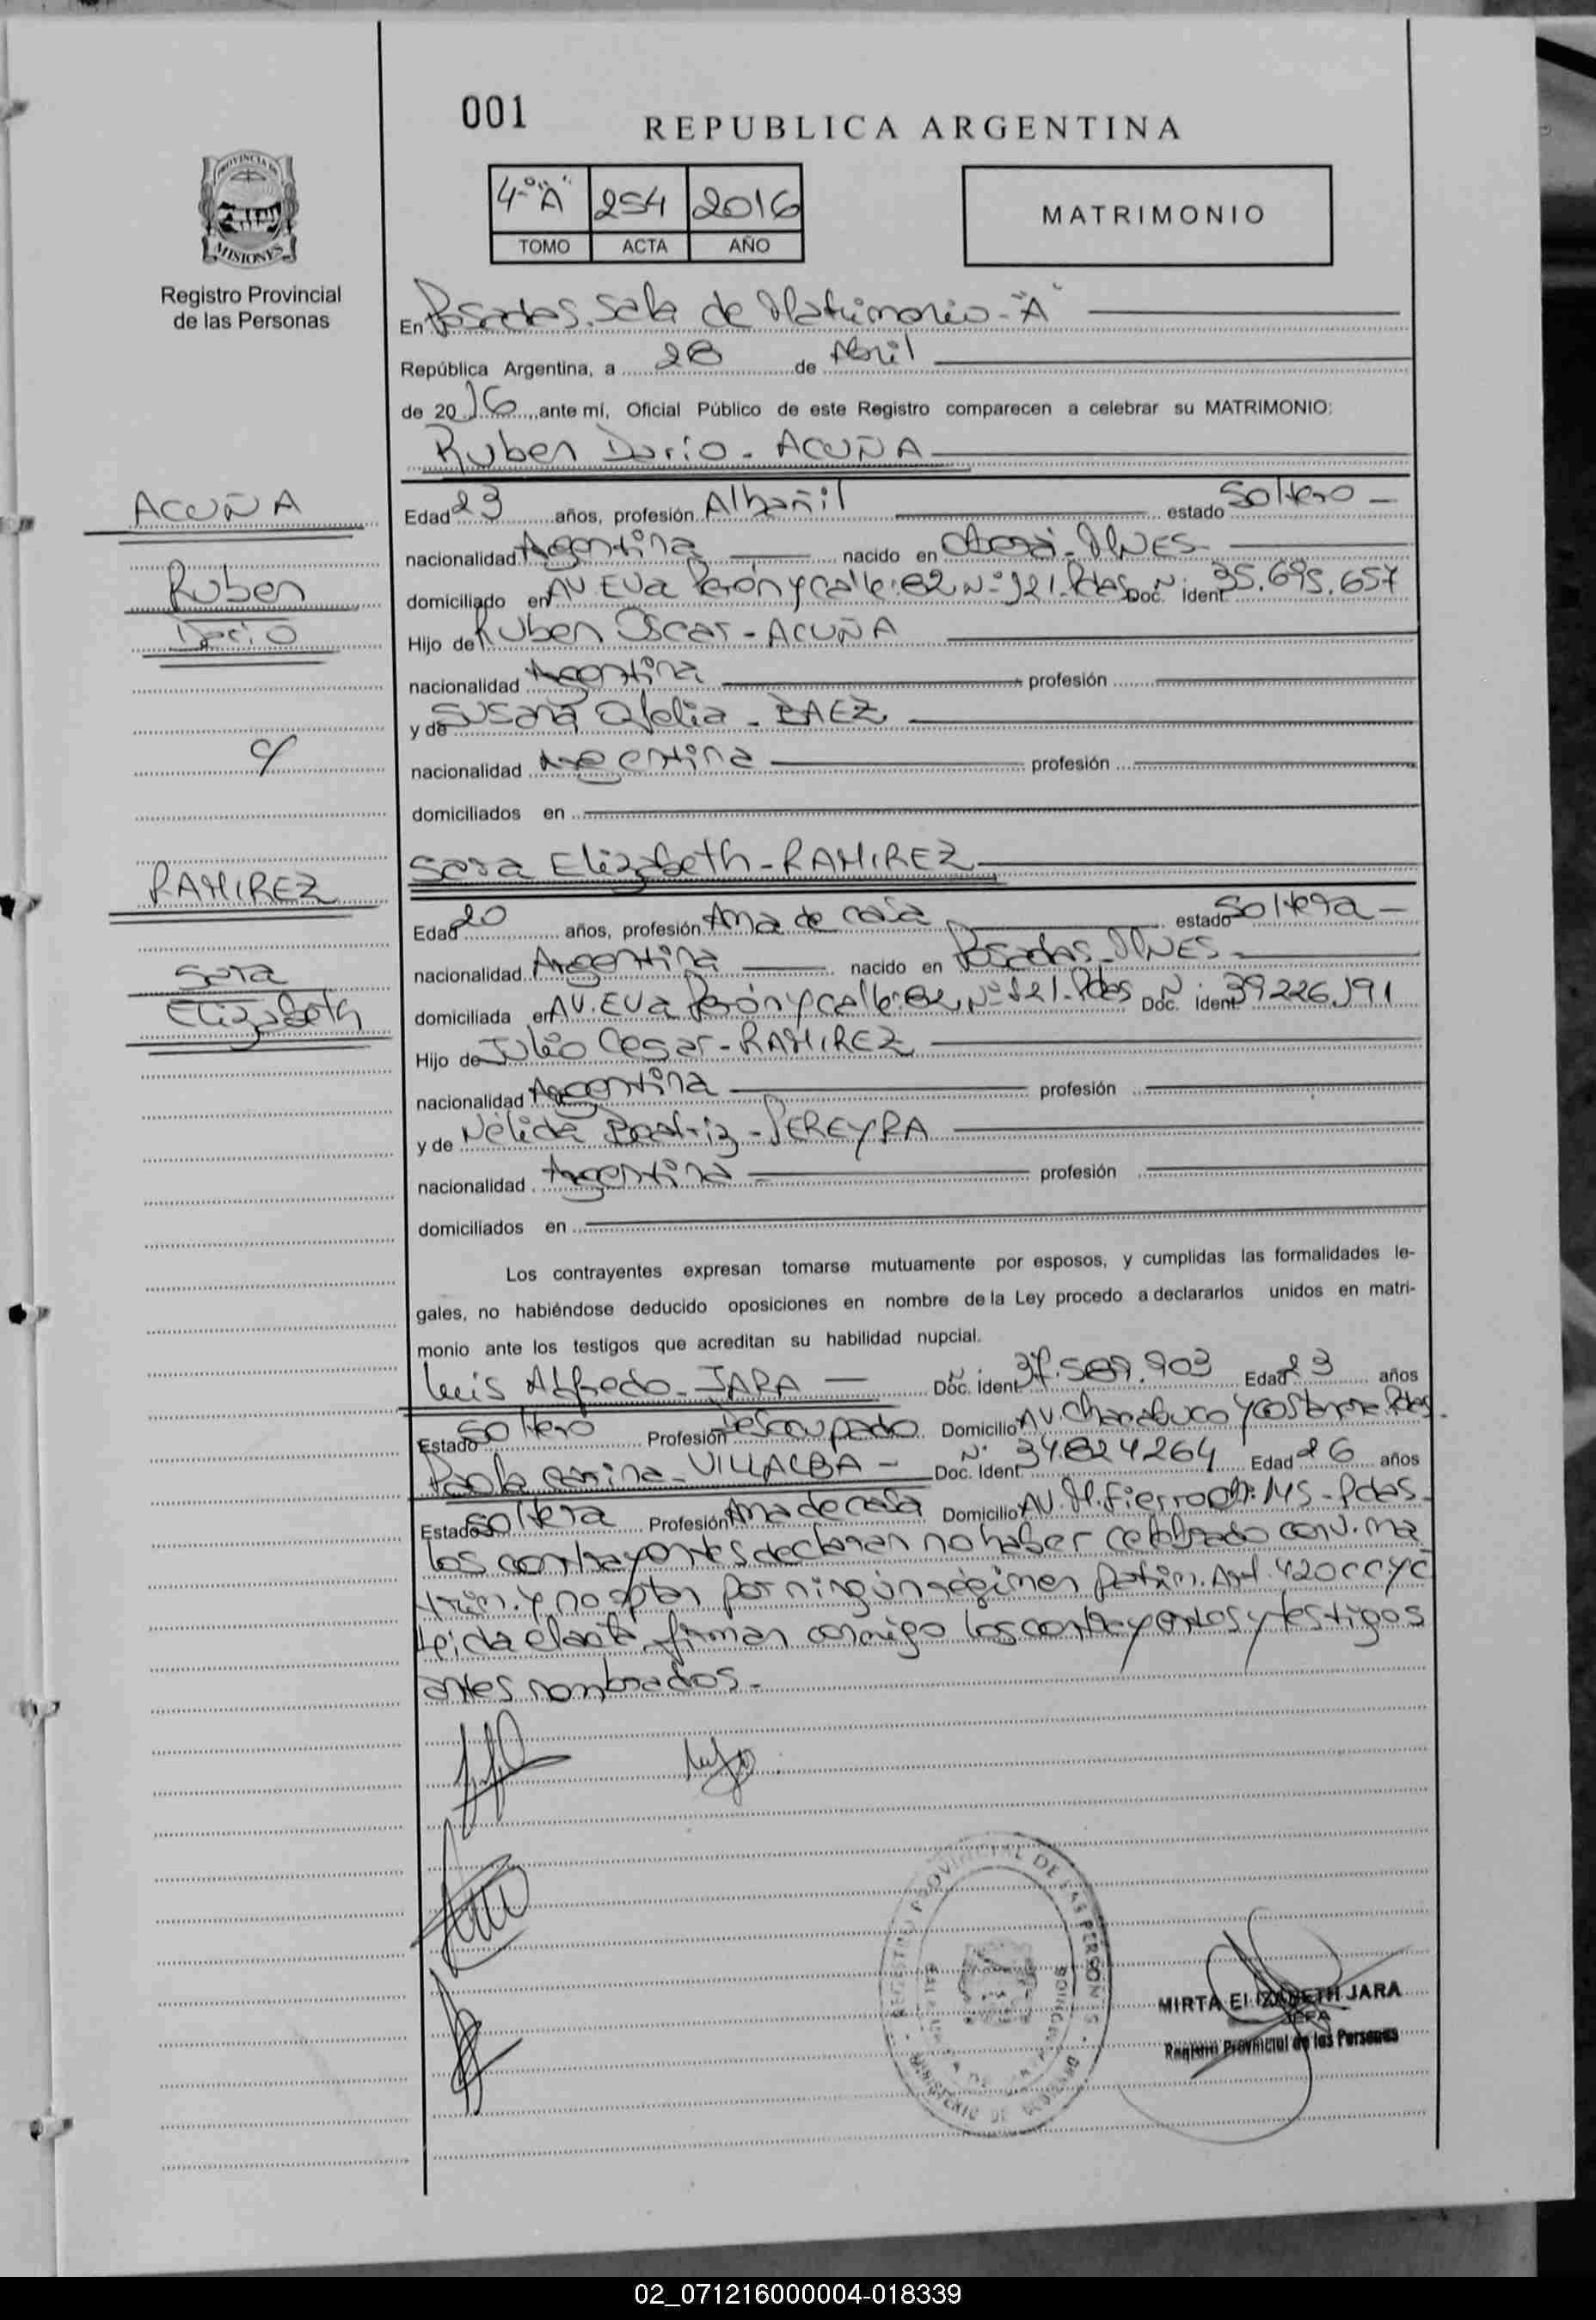 001
REPUBLICA ARGENTINA
4º "A" 254 2016
TOMO ACTA AÑO
MATRIMONIO
PROVINCIA DE
MISIONES
Registro Provincial
de las Personas
En Posadas. Sala de Matrimonio - "A"
República Argentina, a 28 de Abril
de 2016 ante mí, Oficial Público de este Registro comparecen a celebrar su MATRIMONIO:
Ruben Dario - ACUÑA
ACUÑA
Ruben
Dario
c/
RAMIREZ
Sara
Elizabeth
Edad 23 años, profesión Albañil estado Soltero -
nacionalidad Argentina nacido en Oberá - MNES -
domiciliado en AV. EVa Perón y calle: 82 Nº 921. Pdas Doc. Nº Ident. 35.695.657
Hijo de Ruben Oscar - ACUÑA
nacionalidad Argentina profesión
y de Susana Ofelia - BAEZ
nacionalidad Argentina profesión
domiciliados en
Sara Elizabeth - RAMIREZ
Edad 20 años, profesión Ama de casa estado Soltera -
nacionalidad Argentina nacido en Posadas - MNES -
domiciliada en AV. EVa Perón y calle: 82 Nº 921. Pdas Doc. Nº Ident. 39226191
Hijo de Julio Cesar - RAMIREZ
nacionalidad Argentina profesión
y de Nélida Beatriz - PEREYRA
nacionalidad Argentina profesión
domiciliados en
Los contrayentes expresan tomarse mutuamente por esposos, y cumplidas las formalidades le-
gales, no habiéndose deducido oposiciones en nombre de la Ley procedo a declararlos unidos en matri-
monio ante los testigos que acreditan su habilidad nupcial.
Luis Alfredo - JARA - Doc. Nº Ident. 37.589.903 Edad 23 años
Estado Soltero Profesión Desocupado Domicilio AV. Chacabuco y Costanera Pdas.
Paola Carina - VILLALBA - Doc. Nº Ident. 34824264 Edad 26 años
Estado Soltera Profesión Ama de casa Domicilio AV. M. Fierro 145 - Pdas -
Los contrayentes declaran no haber celebrado conv. ma
trim. y no optan por ningún régimen patrim. Art. 420 CCYC
Leida el acta, firman conmigo los contrayentes y testigos
antes nombrados. -
REGISTRO PROVINCIAL DE LAS PERSONAS
MINISTERIO DE GOBIERNO
MIRTA ELIZABETH JARA
JEFA
Registro Provincial de las Personas
02_071216000004-018339